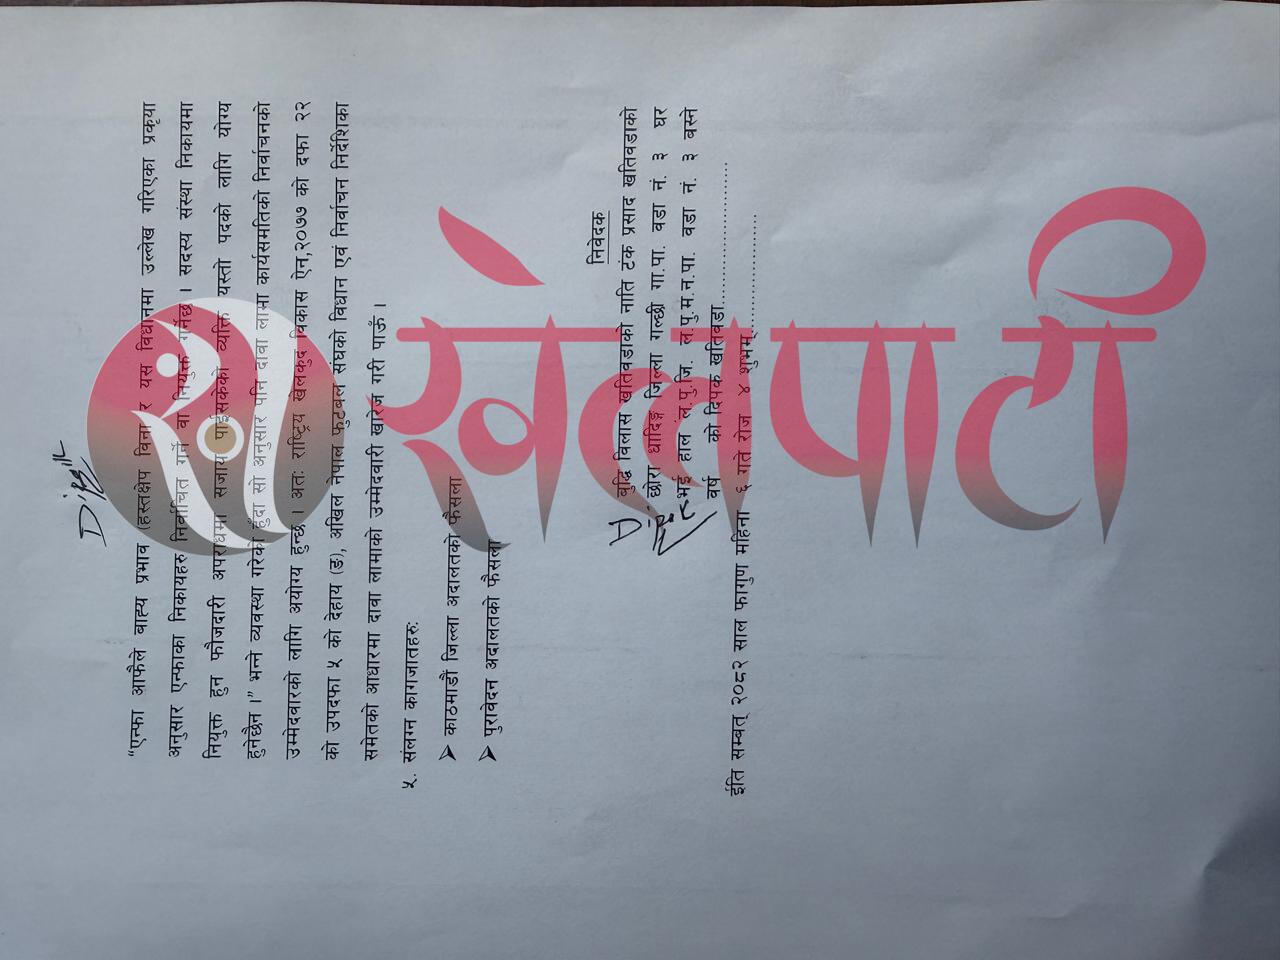 "एन्फा आफैले बाह्य प्रभाव (हस्तक्षेप विना र यस विधानमा उल्लेख गरिएका प्रकृया
अनुसार एन्फाका निकायहरु निर्वाचित गर्ने वा नियुक्त गर्नेछ । सदस्य संस्था निकायमा
नियुक्त हुन फौजदारी अपराधमा सजाय पाईसकेको व्यक्ति यस्तो पदको लागि योग्य
हुनेछैन ।" भन्ने व्यवस्था गरेको हुँदा सो अनुसार पनि दावा लामा कार्यसमतिको निर्वाचनको
उम्मेदवारको लागि अयोग्य हुन्छ । अतः राष्ट्रिय खेलकुद विकास ऐन,२०७७ को दफा २२
को उपदफा ५ को देहाय (ङ), अखिल नेपाल फुटबल संघको विधान एवं निर्वाचन निर्देशिका
समेतको आधारमा दावा लामाको उम्मेदवारी खारेज गरी पाऊँ ।
५. संलग्न कागजातहरु:
➤ काठमाडौं जिल्ला अदालतको फैसला
➤ पुरावेदन अदालतको फैसला
निवेदक
बुद्धि विलास खतिवडाको नाति टंक प्रसाद खतिवडाको
छोरा धादिङ्ग जिल्ला गल्छी गा.पा. वडा नं. ३ घर
भई हाल ल.पु.जि. ल.पु.म.न.पा. वडा नं. ३ बस्ने
वर्ष को दिपक खतिवडा
ईति सम्बत् २०८२ साल फागुण महिना ६ गते रोज ४ शुभम्
खेलपाटी